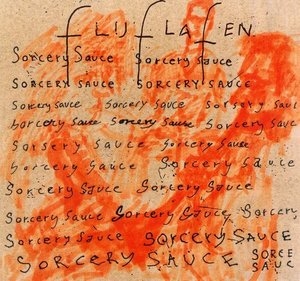 fLUfLAfEN
Sorcery Sauce Sorcery Sauce
Sorcery Sauce SORCERY SAUCE
Sorcery Sauce Sorcery Sauce Sorsery Sauce
Sorcery Sauce Sorcery Sauce Sorcery Sauce
Sorsery Sauce Sorcery Sauce
Sorcery Sauce Sorcery Sauce
Sorcery Sauce Sorcery Sauce
Sorcery Sauce Sorcery Sauce Sorcery
Sorcery Sauce SORCERY SAUCE
SORCERY SAUCE SORCE
SAUC